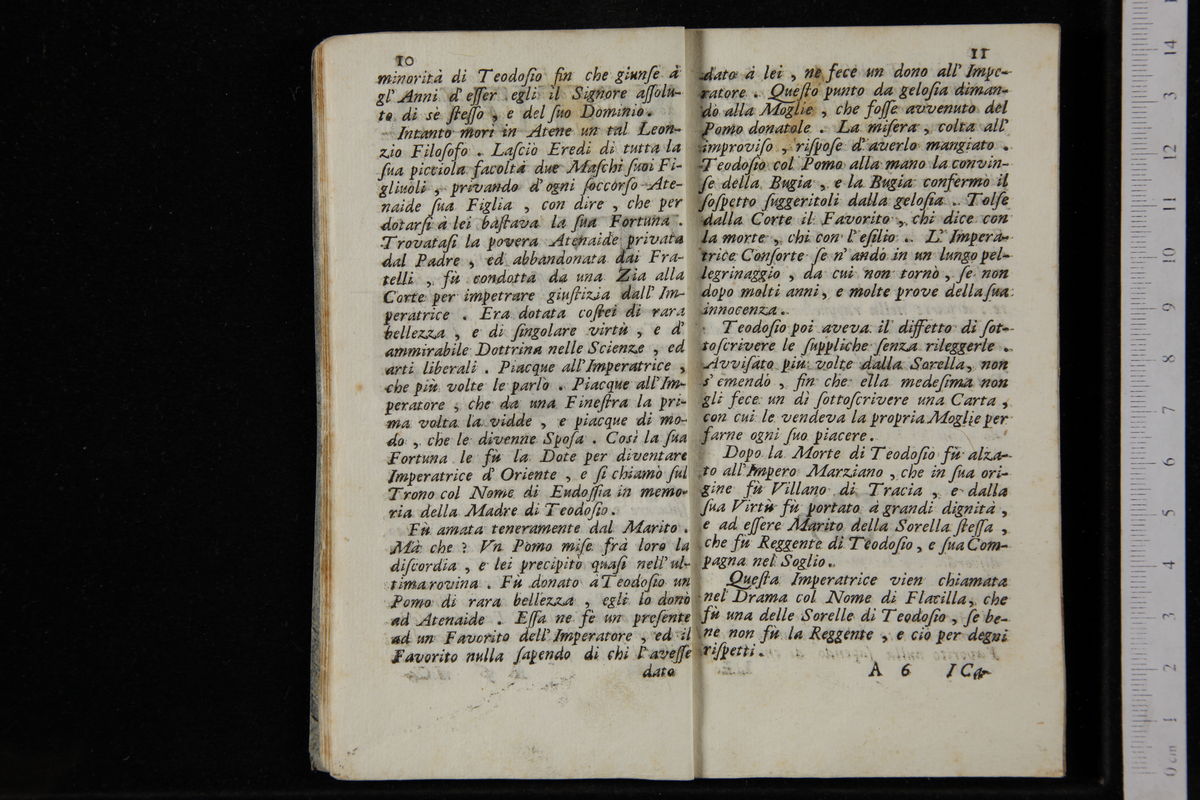 10
minorità di Teodoſio fin che giunſe à
gl' Anni d' eſſer egli il Signore aſſolu-
to di sè ſteſſo , e del ſuo Dominio .
Intanto morì in Atene un tal Leon-
zio Filoſofo . Laſciò Eredi di tutta la
ſua picciola facoltà due Maſchi ſuoi Fi-
gliuoli , privando d' ogni ſoccorſo Ate-
naide ſua Figlia , con dire , che per
dotarſi à lei baſtava la ſua Fortuna .
Trovataſi la povera Atenaide privata
dal Padre , ed abbandonata dai Fra-
telli , fù condotta da una Zia alla
Corte per impetrare giuſtizia dall' Im-
peratrice . Era dotata coſtei di rara
bellezza , e di ſingolare virtù , e d'
ammirabile Dottrina nelle Scienze , ed
arti liberali . Piacque all' Imperatrice ,
che più volte le parlò . Piacque all' Im-
peratore , che da una Fineſtra la pri-
ma volta la vidde , e piacque di mo-
do , che le divenne Spoſa . Così la ſua
Fortuna le fù la Dote per diventare
Imperatrice d' Oriente , e ſi chiamò ſul
Trono col Nome di Eudoſſia in memo-
ria della Madre di Teodoſio .
Fù amata teneramente dal Marito .
Mà che ? Vn Pomo miſe frà loro la
diſcordia , e lei precipitò quaſi nell' ul-
tima rovina . Fù donato à Teodoſio un
Pomo di rara bellezza , egli lo donò
ad Atenaide . Eſſa ne fè un preſente
ad un Favorito dell' Imperatore , ed il
Favorito nulla ſapendo di chi l' aveſſe
dato
11
dato à lei , ne fece un dono all' Impe-
ratore . Queſto punto da geloſia diman-
dò alla Moglie , che foſſe avvenuto del
Pomo donatole . La miſera , colta all'
improviſo , riſpoſe d' averlo mangiato .
Teodoſio col Pomo alla mano la convin-
ſe della Bugia , e la Bugia confermò il
ſoſpetto ſuggeritoli dalla geloſia . Tolſe
dalla Corte il Favorito , chi dice con
la morte , chi con l' eſilio . L' Impera-
trice Conſorte ſe n' andò in un lungo pel-
legrinaggio , da cui non tornò , ſe non
dopo molti anni , e molte prove della ſua
innocenza .
Teodoſio poi aveva il diffetto di ſot-
toſcrivere le ſuppliche ſenza rileggerle .
Avviſato più volte dalla Sorella , non
s' emendò , fin che ella medeſima non
gli fece un dì ſottoſcrivere una Carta ,
con cui le vendeva la propria Moglie per
farne ogni ſuo piacere .
Dopo la Morte di Teodoſio fù alza-
to all' Impero Marziano , che in ſua ori-
gine fù Villano di Tracia , e dalla
ſua Virtù fù portato à grandi dignità ,
e ad eſſere Marito della Sorella ſteſſa ,
che fù Reggente di Teodoſio , e ſua Com-
pagna nel Soglio .
Queſta Imperatrice vien chiamata
nel Drama col Nome di Flacilla , che
fù una delle Sorelle di Teodoſio , ſe be-
ne non fù la Reggente , e ciò per degni
riſpetti .
A 6 I Ca-
0 cm 1 2 3 4 5 6 7 8 9 10 11 12 3 14